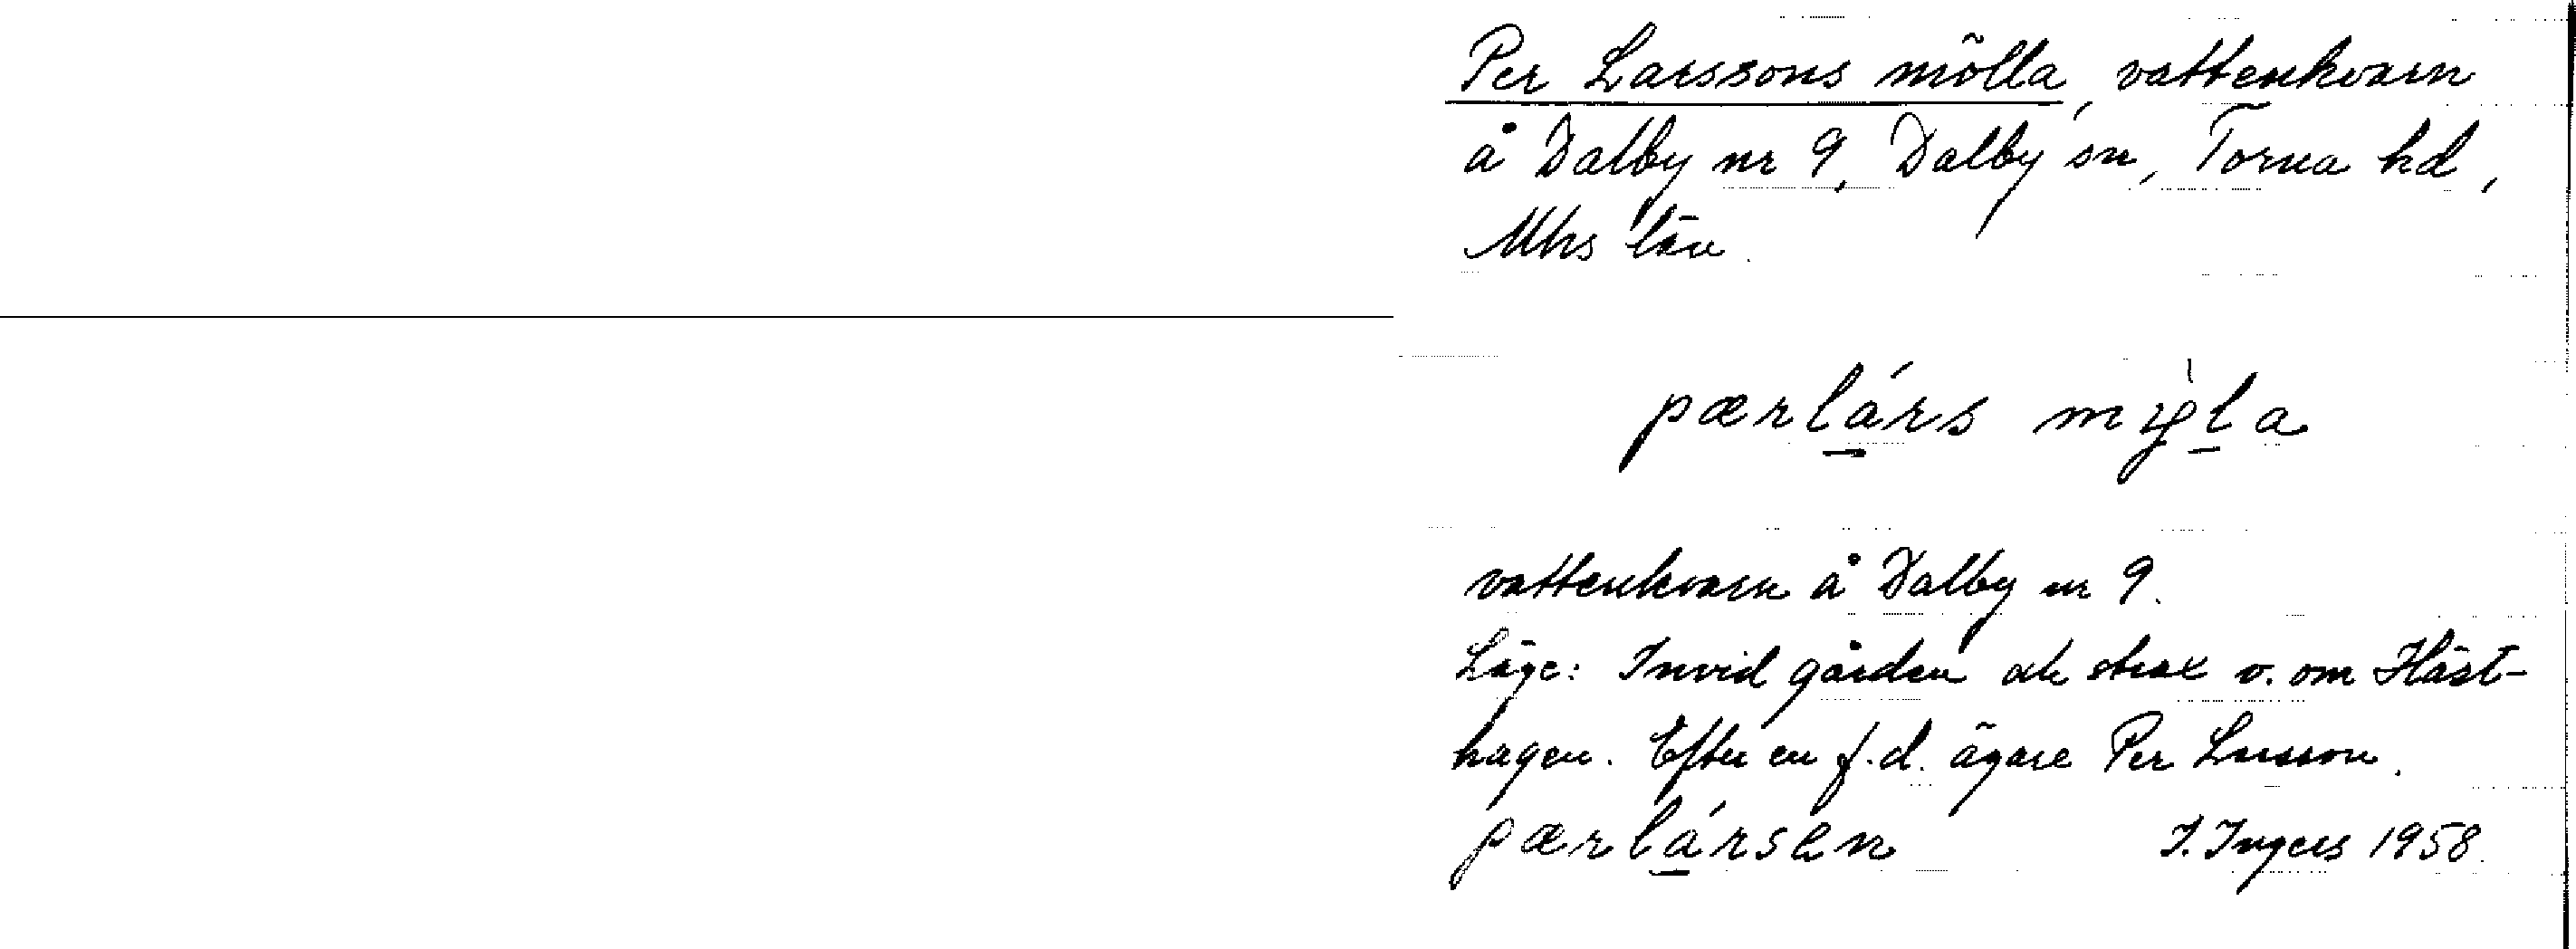 Per Larssons mölla, vattenkvarn
å Dalby nr 9, Dalby sn, Torna hd,
Mhs län.
pærlárs
vattenkvarn å Dalby nr 9.
Läge: Invid gården och strax v. om Häst-
hagen. Efter en f.d. ägare Per Larsson.
pærlársen I. Ingers 1958.